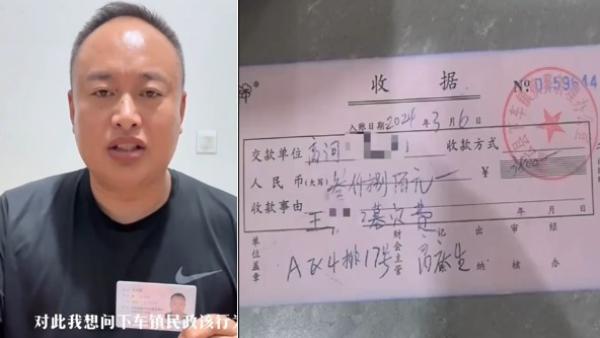 对此我想问下车镇民政该行为
收 据
№ 0159644
入账日期 2024 年 3 月 6 日
交款单位 高河
收款方式
人民币(大写) 叁仟捌佰元
¥
收款事由 王 墓穴费
年 月 日
单位盖章 A区4排17号 财会主管 记 出纳 审核 经办